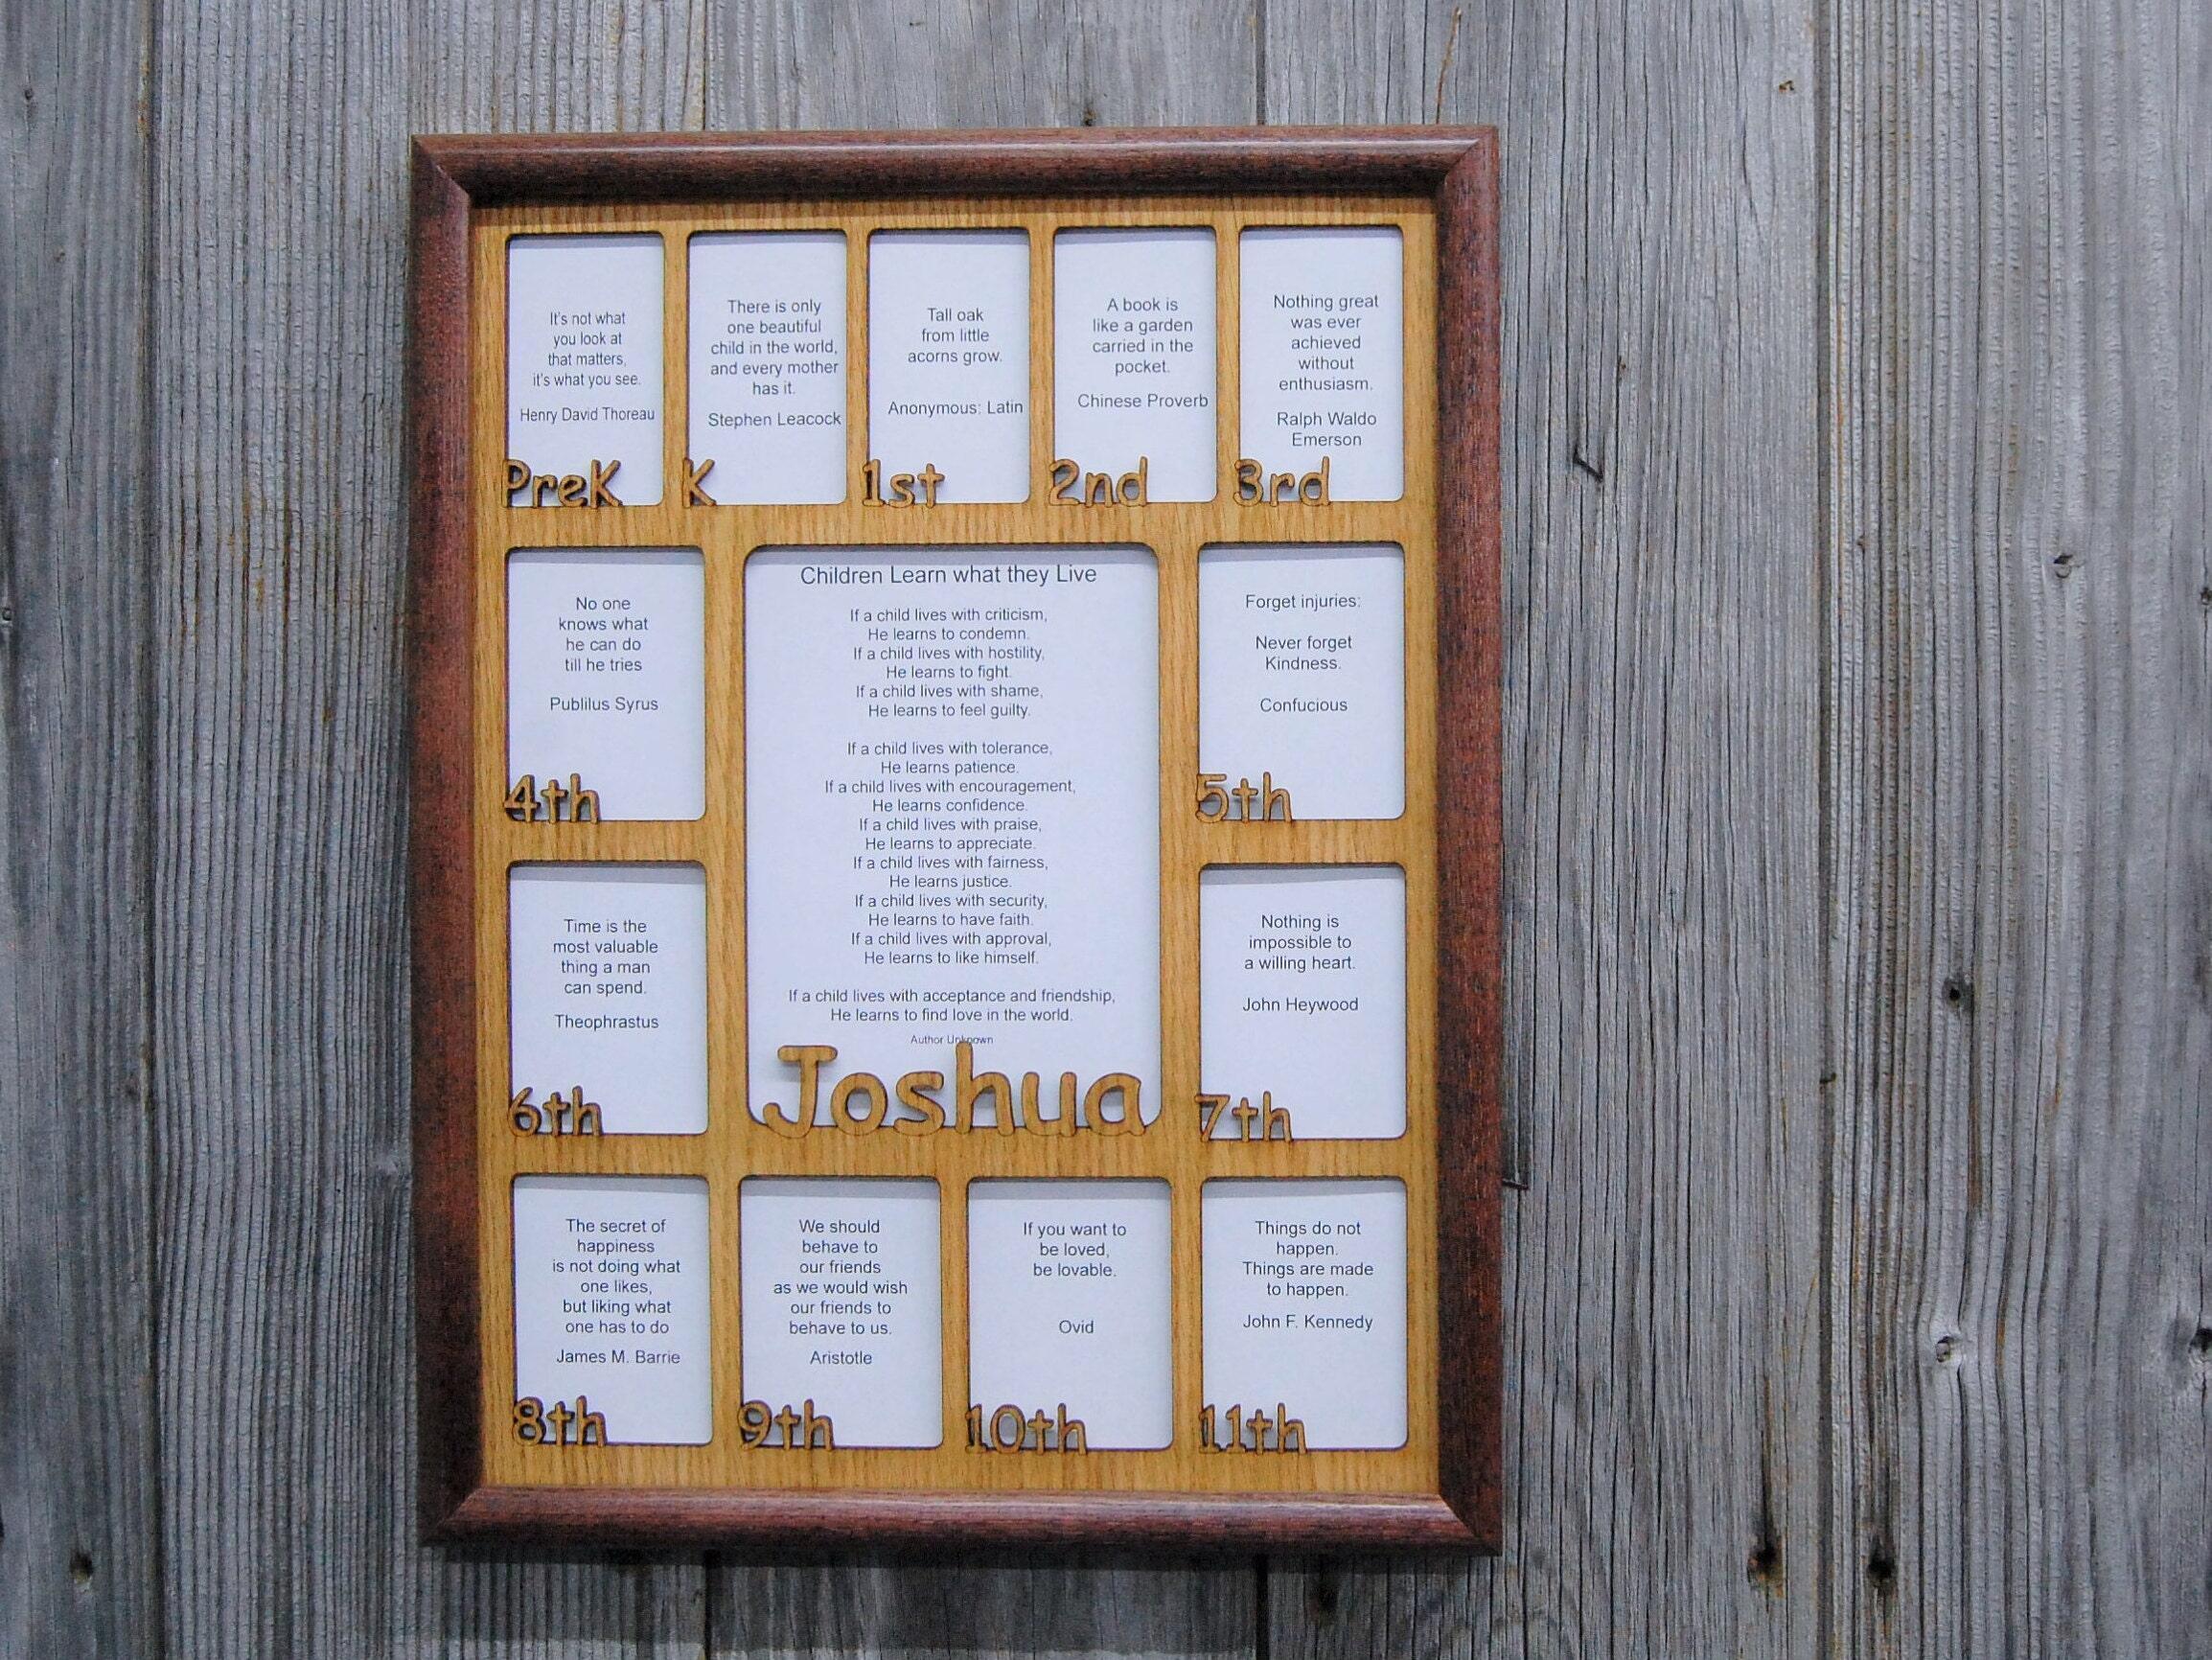 It's not what
you look at
that matters,
it's what you see.
Henry David Thoreau
PreK
There is only
one beautiful
child in the world,
and every mother
has it.
Stephen Leacock
K
Tall oak
from little
acorns grow.
Anonymous: Latin
1st
A book is
like a garden
carried in the
pocket.
Chinese Proverb
2nd
Nothing great
was ever
achieved
without
enthusiasm.
Ralph Waldo
Emerson
3rd
No one
knows what
he can do
till he tries
Publilus Syrus
4th
Children Learn what they Live
If a child lives with criticism,
He learns to condemn.
If a child lives with hostility,
He learns to fight.
If a child lives with shame,
He learns to feel guilty.
If a child lives with tolerance,
He learns patience.
If a child lives with encouragement,
He learns confidence.
If a child lives with praise,
He learns to appreciate.
If a child lives with fairness,
He learns justice.
If a child lives with security,
He learns to have faith.
If a child lives with approval,
He learns to like himself.
If a child lives with acceptance and friendship,
He learns to find love in the world.
Author Unknown
Joshua
Forget injuries:
Never forget
Kindness.
Confucious
5th
Time is the
most valuable
thing a man
can spend.
Theophrastus
6th
Nothing is
impossible to
a willing heart.
John Heywood
7th
The secret of
happiness
is not doing what
one likes,
but liking what
one has to do
James M. Barrie
8th
We should
behave to
our friends
as we would wish
our friends to
behave to us.
Aristotle
9th
If you want to
be loved,
be lovable.
Ovid
10th
Things do not
happen.
Things are made
to happen.
John F. Kennedy
11th